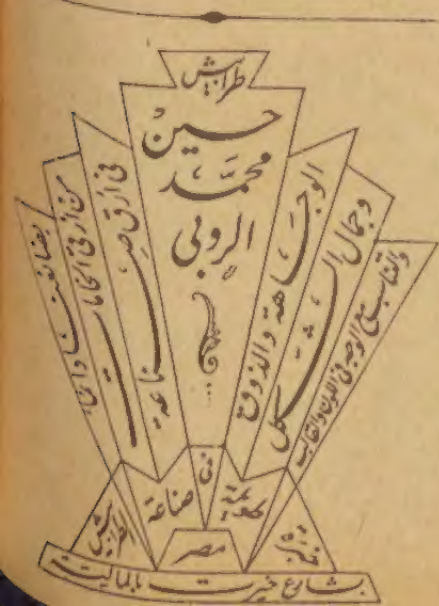 طرابيش
حسين
محمد
الروبي
الوجاهة والذوق
وجمال الشكل
والتناسب مع الوجه في اللون والقالب
في أرقى صناعة
من أرقى الخامات
بضائعنا دائما
صناعة
الطرابيش
مصر
بشارع خيرت بالمالية